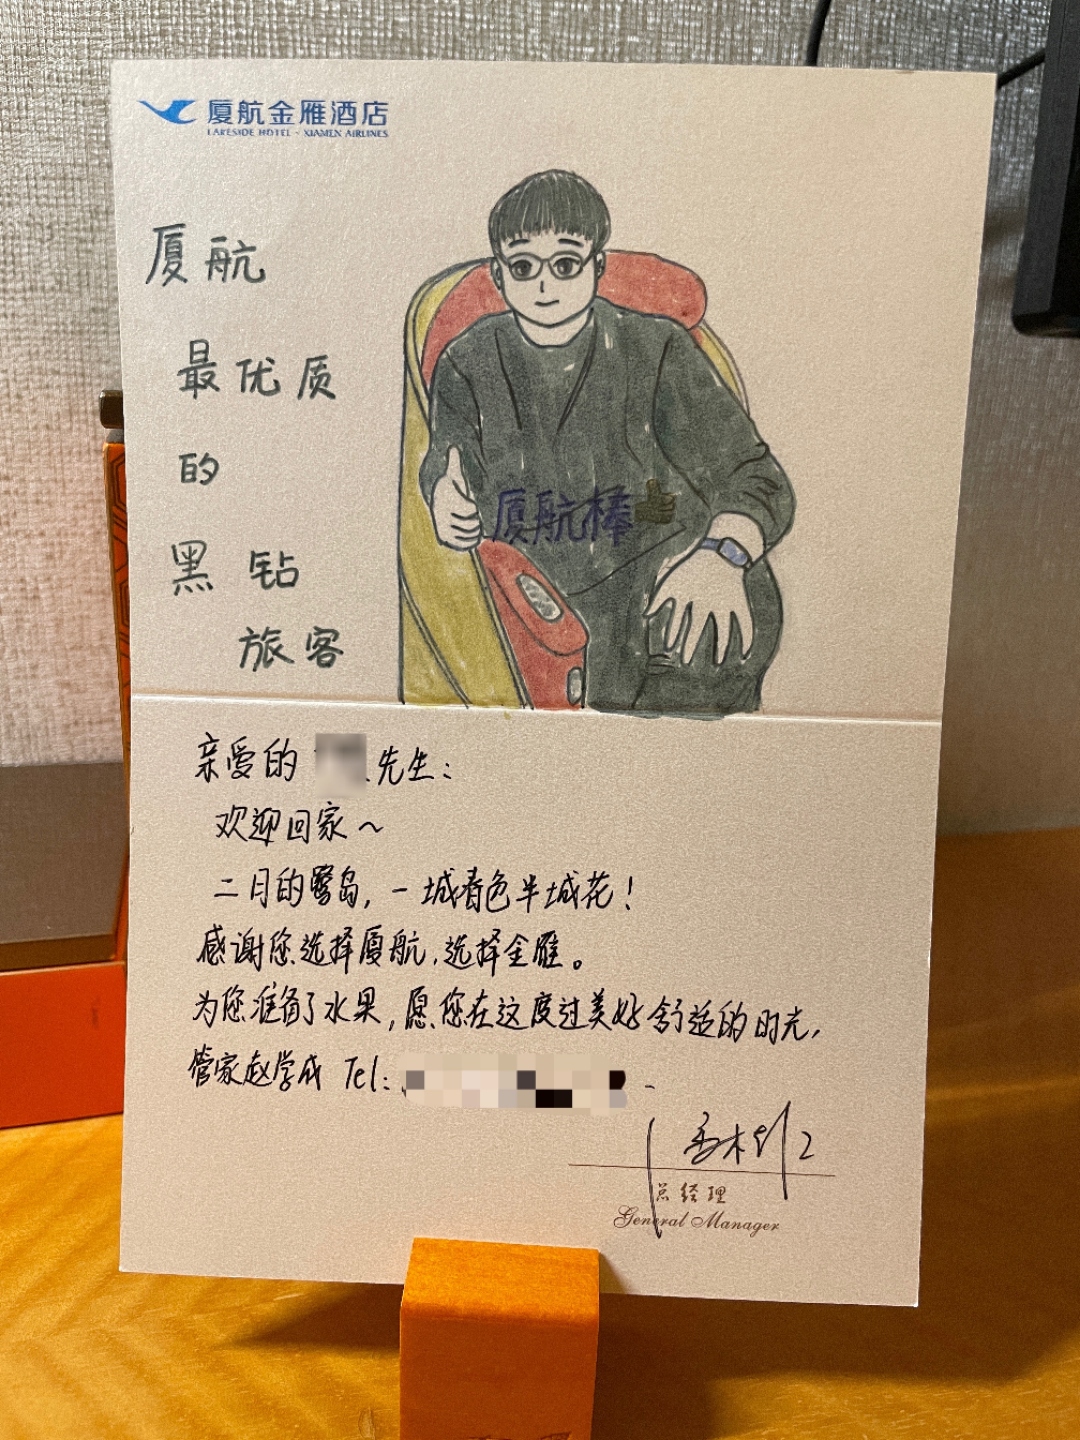 厦航金雁酒店
LAKESIDE HOTEL · XIAMEN AIRLINES
厦航
最优质
的
黑钻
旅客
厦航棒
亲爱的 先生：
欢迎回家～
二月的鹭岛，一城春色半城花！
感谢您选择厦航，选择金雁。
为您准备了水果，愿您在这度过美好舒适的时光，
管家赵学成 Tel：
总经理
General Manager